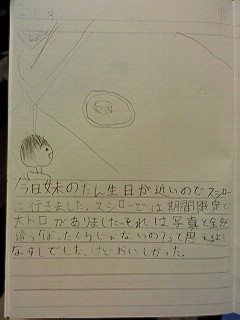 今日妹のたん生日が近いのでスシロー
に行きました。スシローでは期間限定で
大トロがありましたそれは写真と全然
違う
じゃないの?って思えるよう
なすしでした、けどおいしかった。